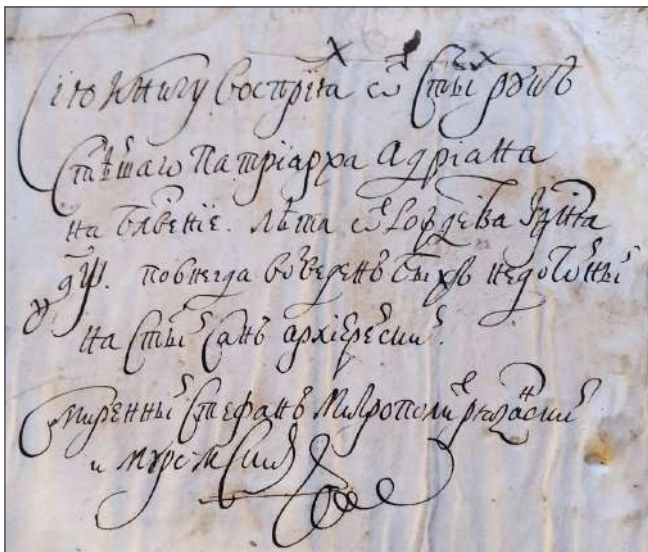 Сїю Книгу Воспрїѧ ѿ Ст҃ы́х рꙋкъ
Ст҃ѣ́шагѡ Патрїарха Адрїана
на блⷭ҇венїе. лѣта ѿ Рождества Хрⷭ҇та
҂аѱ. повнегда возведенъ быхъ недостойный
на ст҃ы́й санъ архїерейский.
Смиренный Стефанъ Митрополит рязанский
и муромский